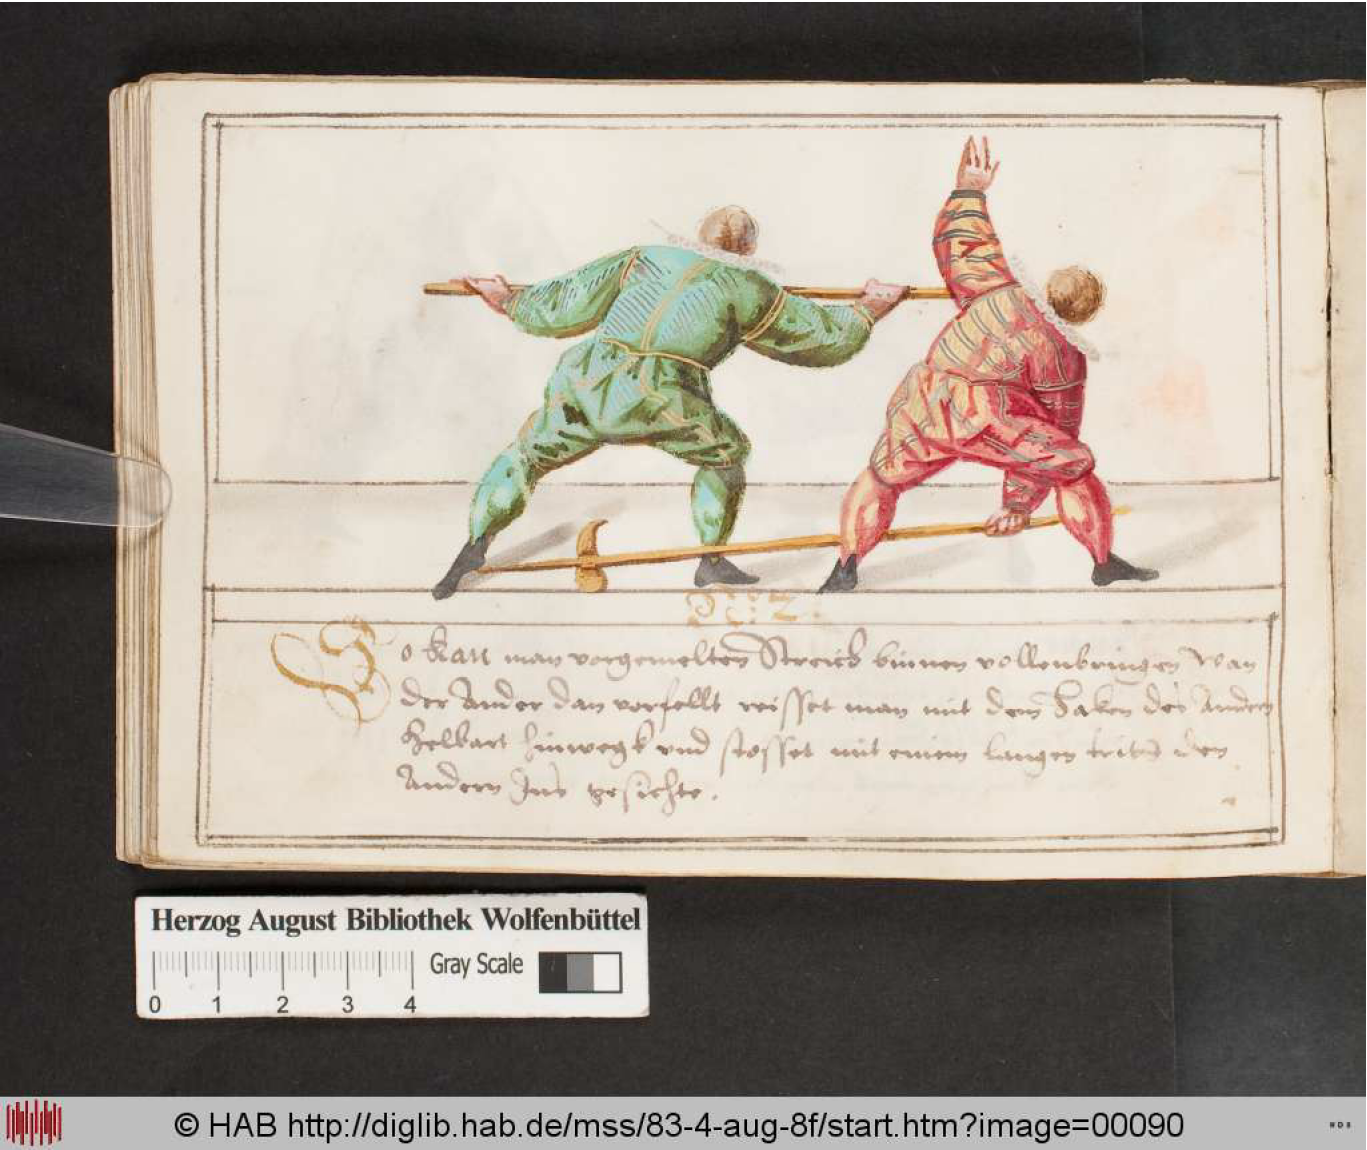 N: 2:
So kan man vorgemelten Streich binnen vollenbringen Wan
der Ander dan vorfellt reisset man mit dem Haken des Andern
Helbart hinwegk vnd stosset mit einem langen tritt den
Andern Ins gesichte.
Herzog August Bibliothek Wolfenbüttel
Gray Scale
0 1 2 3 4
© HAB http://diglib.hab.de/mss/83-4-aug-8f/start.htm?image=00090